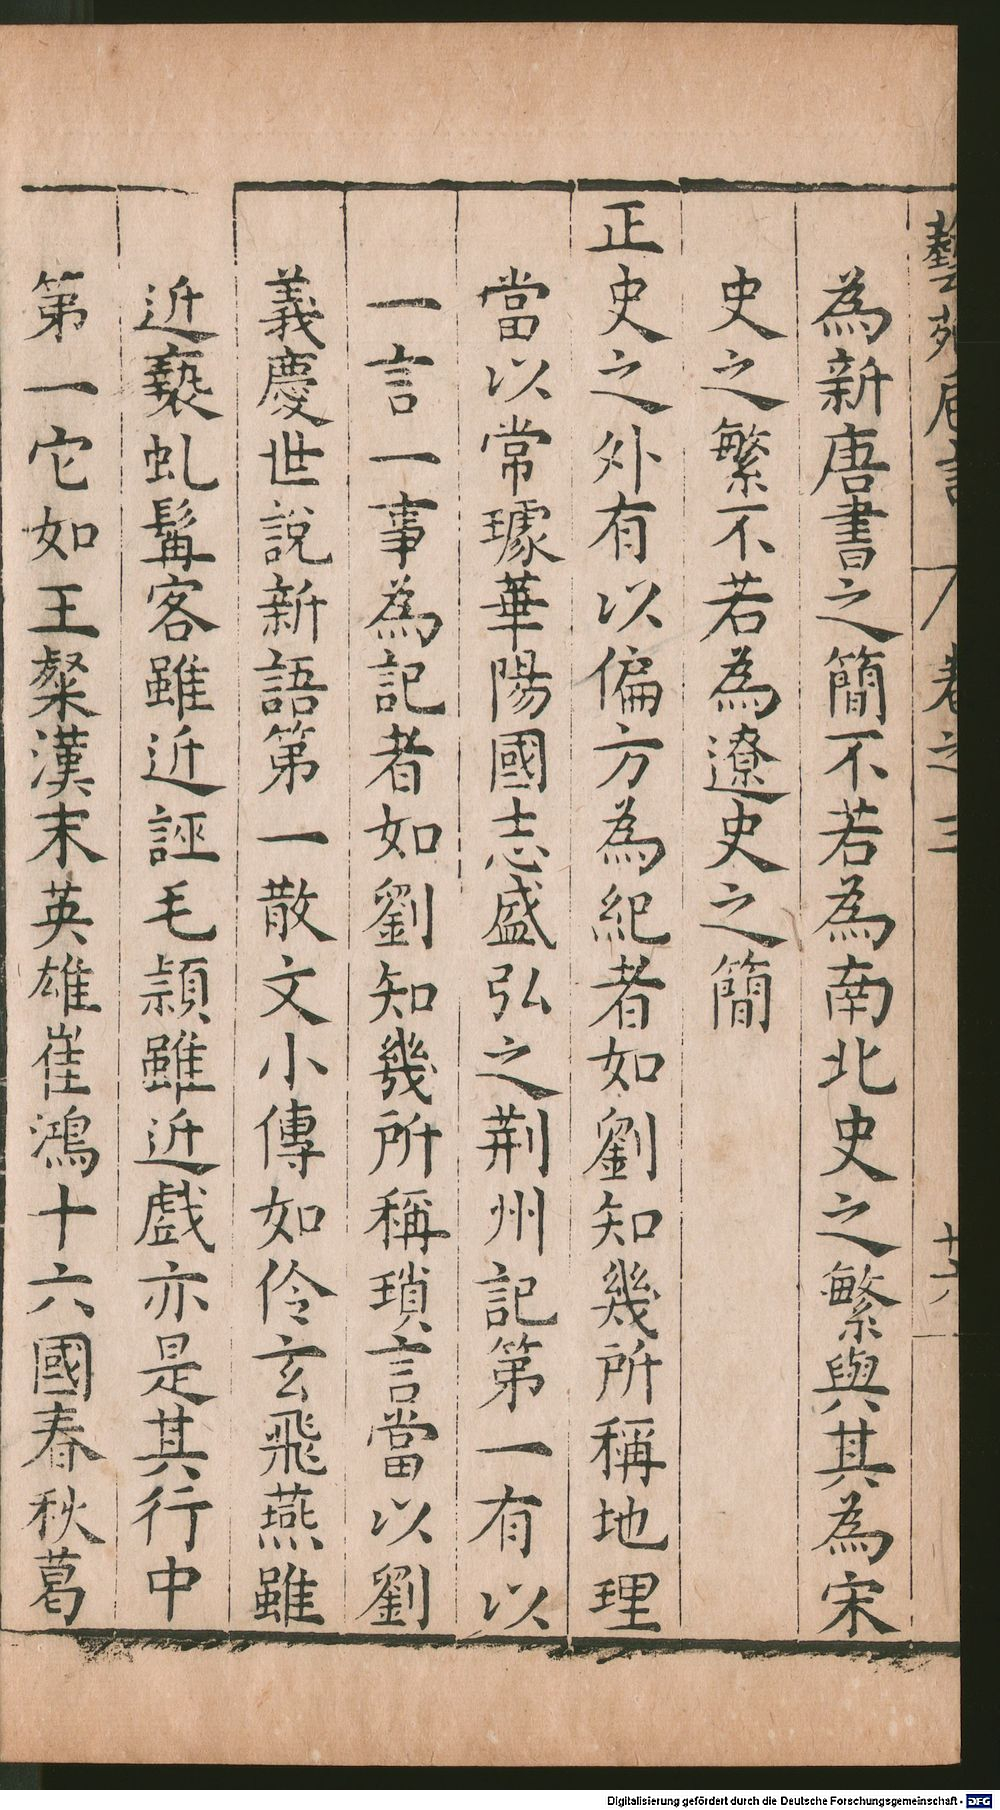 藝苑卮言 卷之三 十六
為新唐書之簡不若為南北史之繁與其為宋
史之繁不若為遼史之簡
正史之外有以偏方為紀者如劉知幾所稱地理
當以常璩華陽國志盛弘之荆州記第一有以
一言一事為記者如劉知幾所稱瑣言當以劉
義慶世說新語第一散文小傳如伶玄飛燕雖
近褻虬髯客雖近誣毛頴雖近戲亦是其行中
第一它如王粲漢末英雄崔鴻十六國春秋葛
Digitalisierung gefördert durch die Deutsche Forschungsgemeinschaft - DFG